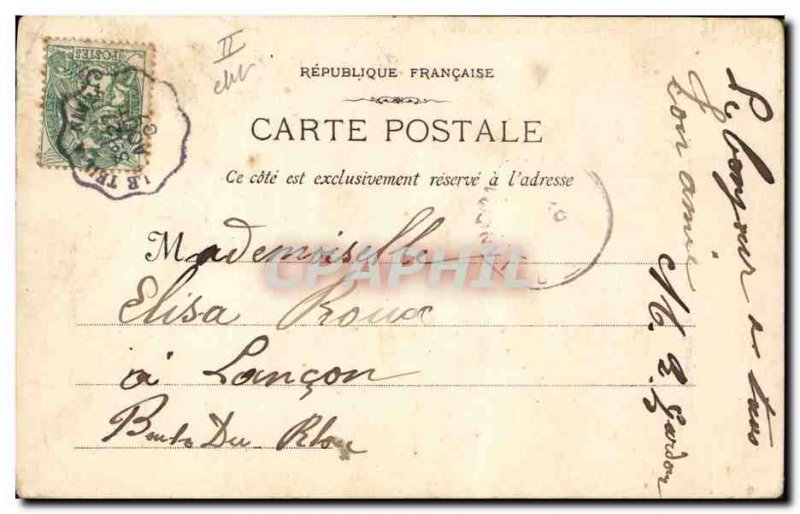 II
POSTES
RÉPUBLIQUE FRANÇAISE
CARTE POSTALE
Ce côté est exclusivement réservé à l'adresse
Mademoiselle
Elisa Roux
à Lançon
Du Rhone
CPAPHIL
Le bonjour a tous
ton amie